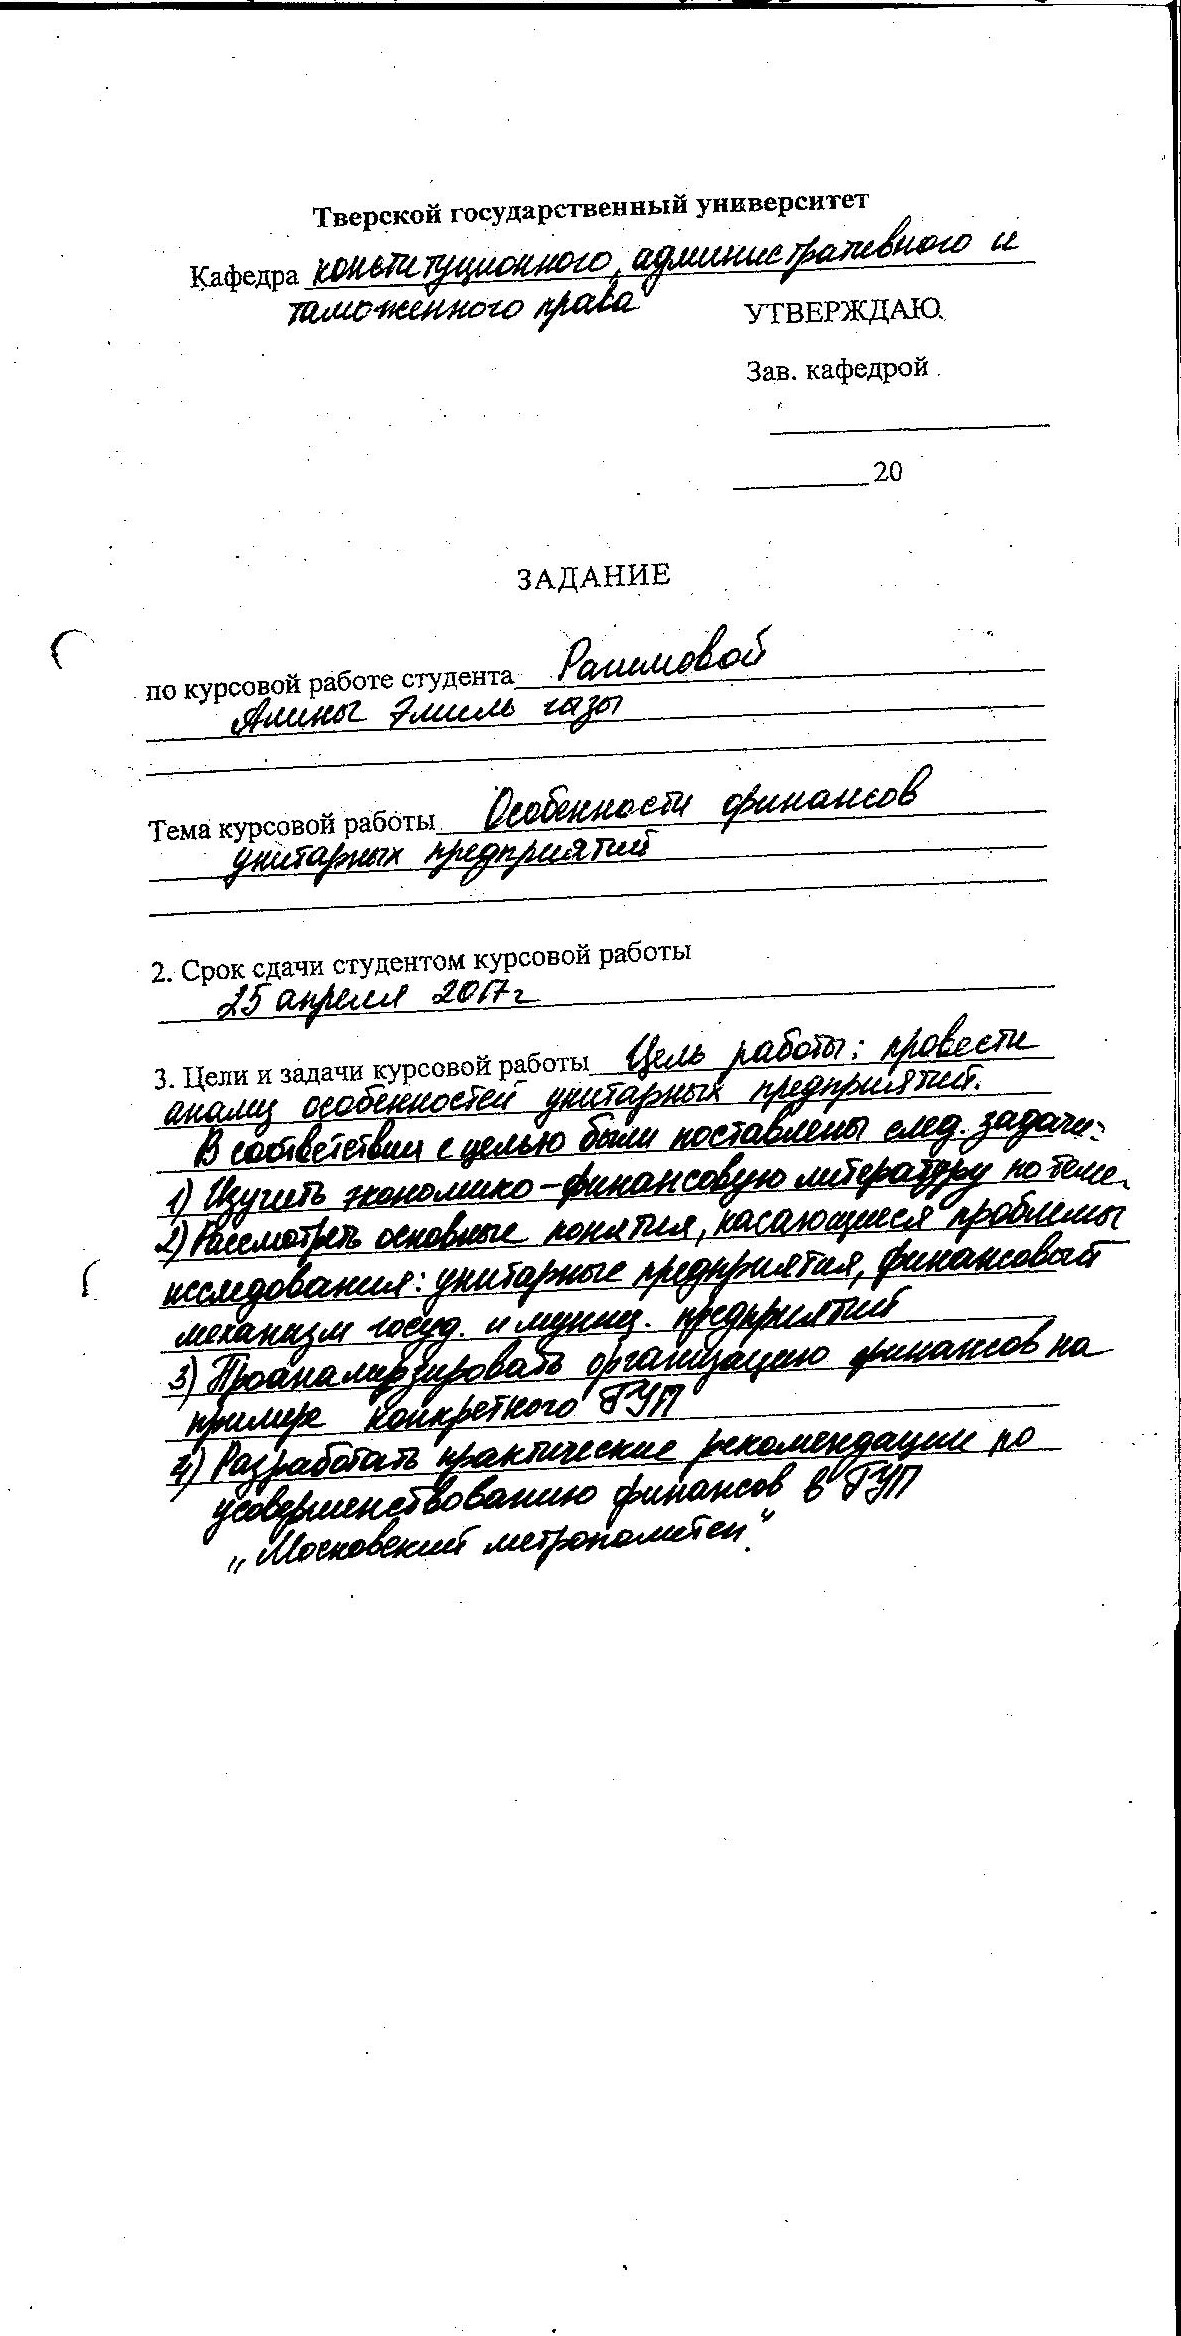 Тверской государственный университет
Кафедра конституционного, административного и
таможенного права
УТВЕРЖДАЮ.
Зав. кафедрой
20
ЗАДАНИЕ
по курсовой работе студента
Алины Эмиль гызы
Тема курсовой работы Особенности финансов
унитарных предприятий
2. Срок сдачи студентом курсовой работы
25 апреля 2017 г
3. Цели и задачи курсовой работы Цель работы: провести
анализ особенностей унитарных предприятий.
В соответствии с целью были поставлены след. задачи:
1) Изучить экономико-финансовую литературу по теме.
2) Рассмотреть основные понятия, касающиеся проблемы
исследования: унитарные предприятия, финансовый
механизм госуд. и муниц. предприятий
3) Проанализировать организацию финансов на
примере конкретного ГУП
4) Разработать практические рекомендации по
усовершенствованию финансов в ГУП
„Московский метрополитен".